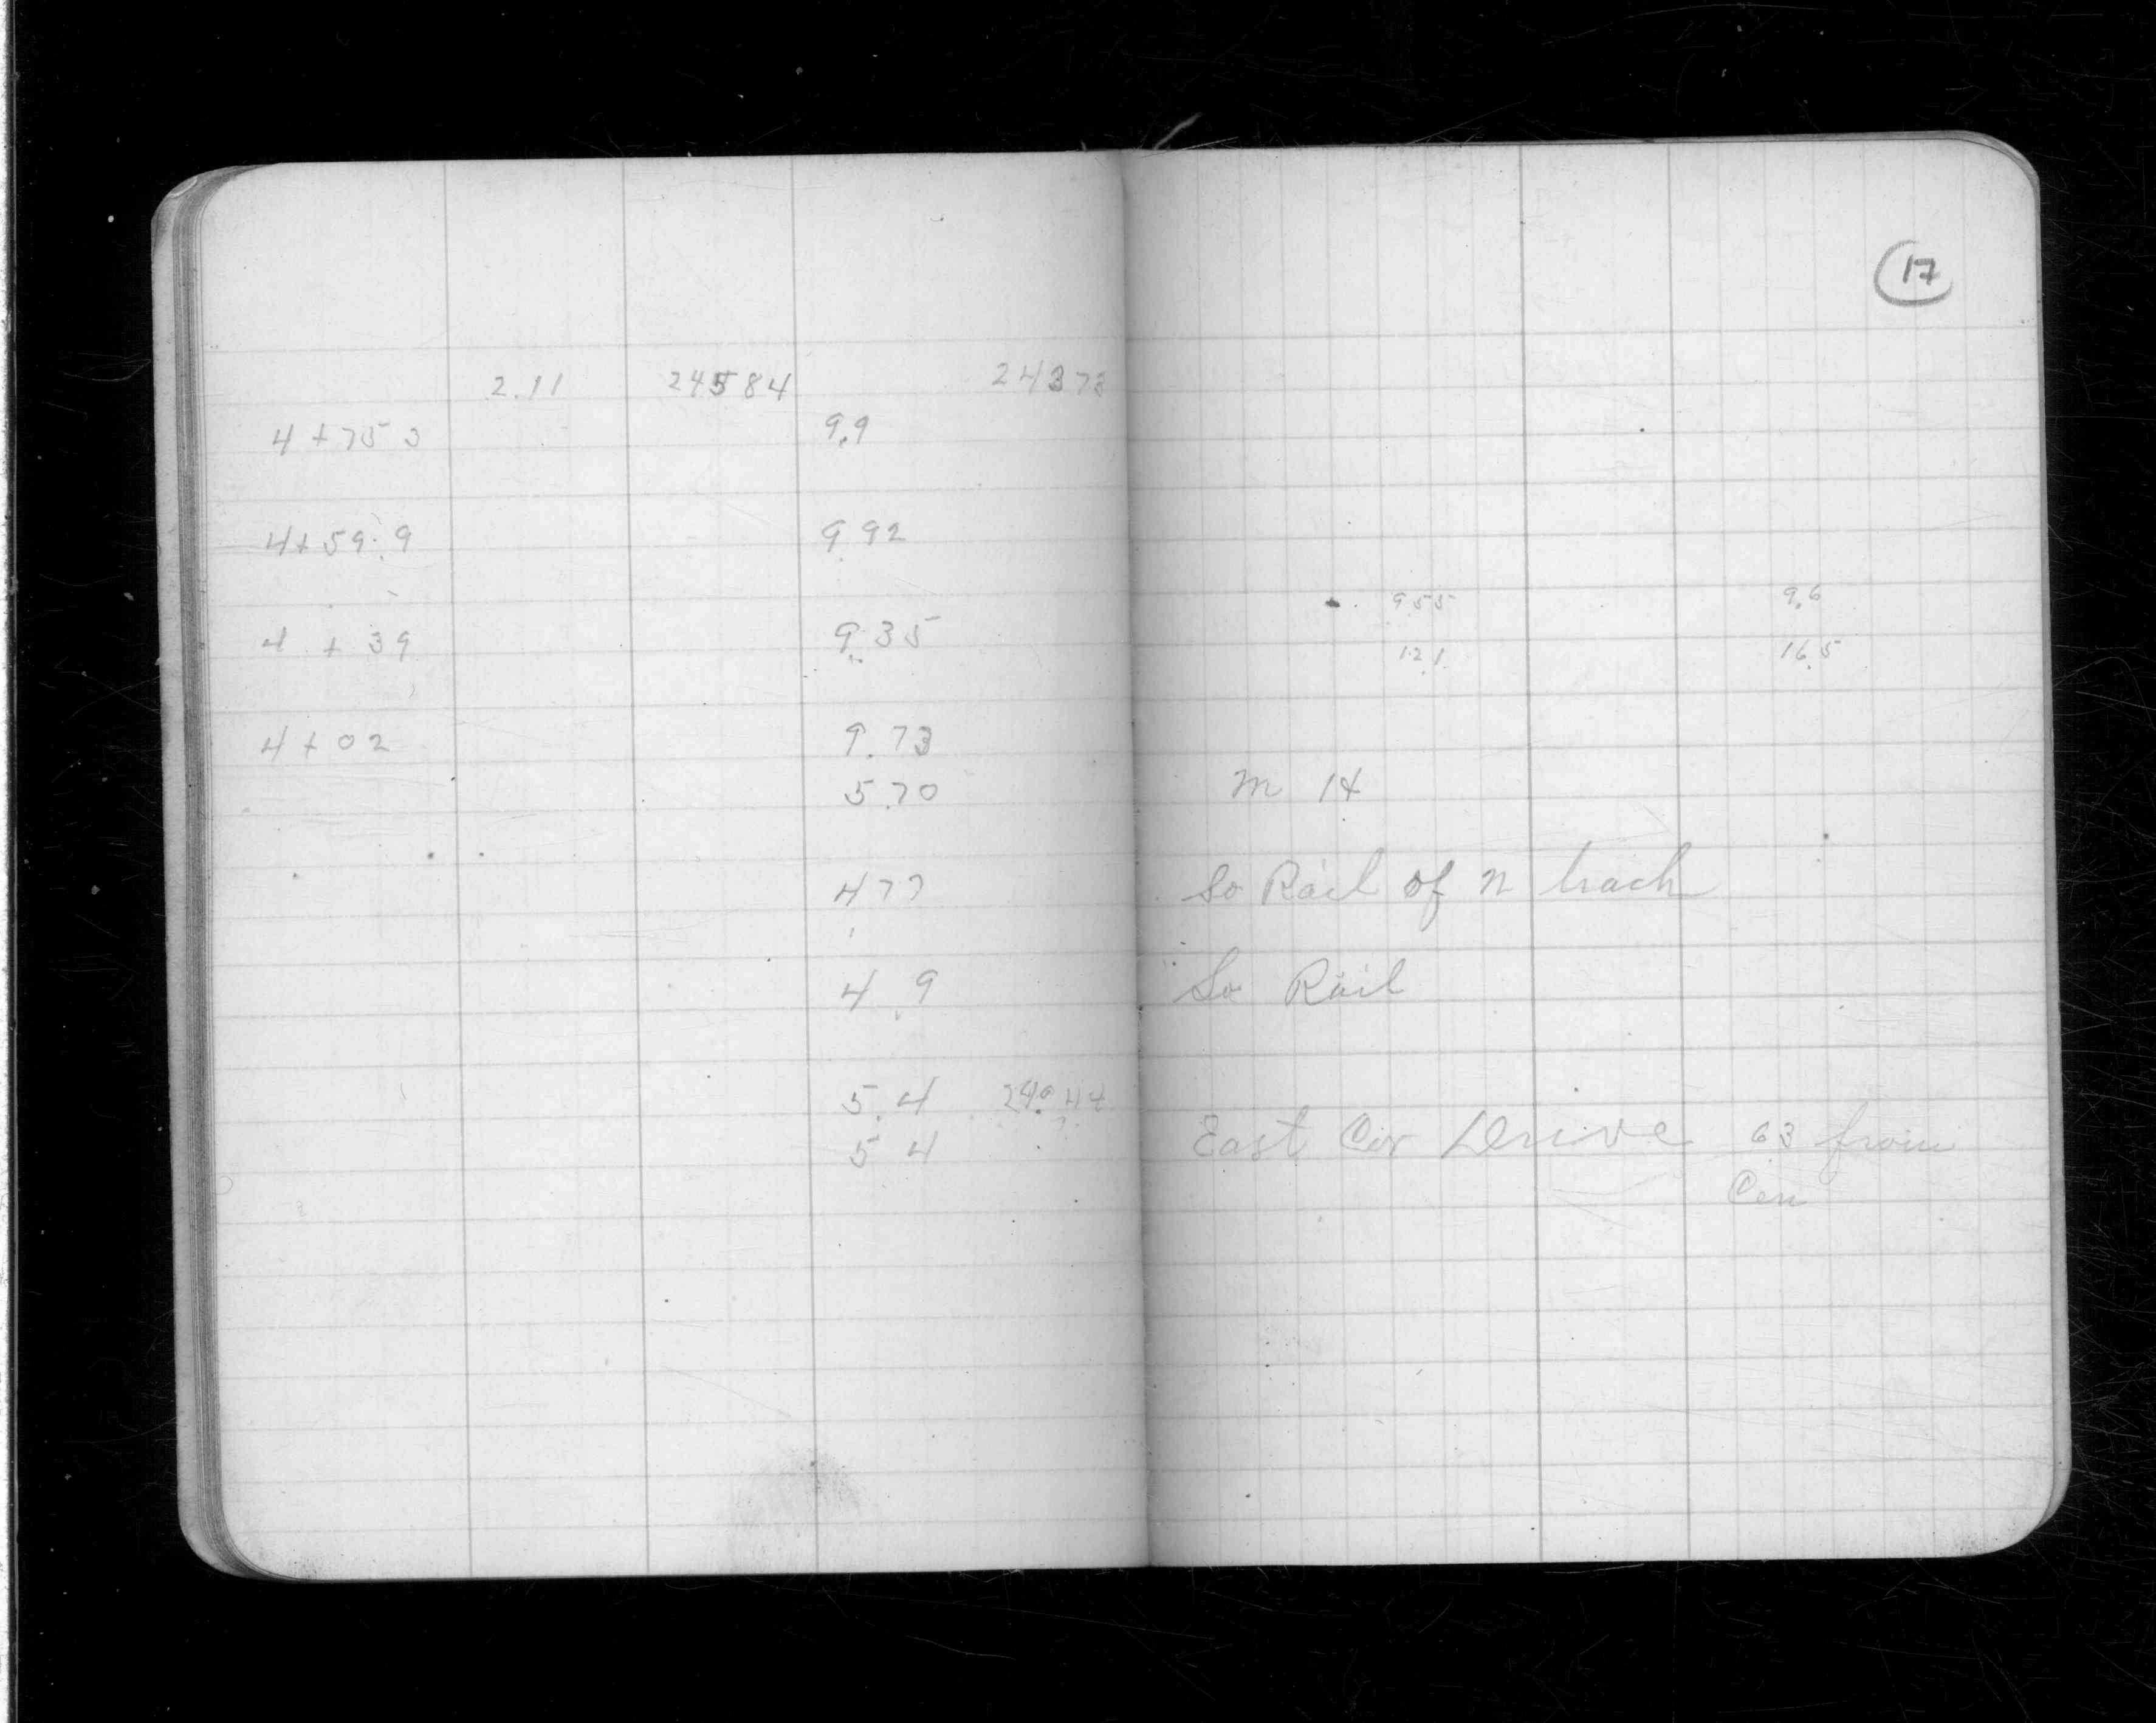 17
2.11 24584 24373
4+75 3 9.9
4+59.9 9.92
9.55 9.6
4 + 39 9.35
12.1 16.5
4+02 9.73
5.70 M 14
4 77 So Rail of N track
4.9 So Rail
5.4 240.44
5 4 East Cor Drive 63 from
Cen